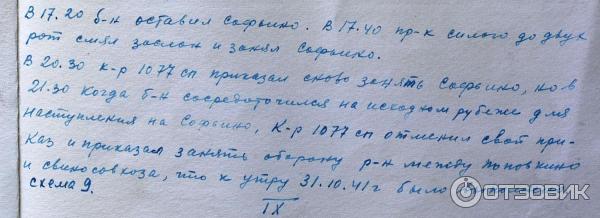 В 17.20 б-н оставил Софьино. В 17.40 пр-к силою до двух
рот смял заслон и занял Софьино.
В 20.30 к-р 1077 сп приказал снова занять Софьино, но в
21.30 когда б-н сосредоточился на исходном рубеже для
наступления на Софьино, к-р 1077 сп отменил свой при-
каз и приказал занять оборону р-н между Поповкино
и свиносовхоза, что к утру 31.10.41 г было
схема 9.
IX
ОТЗОВИК